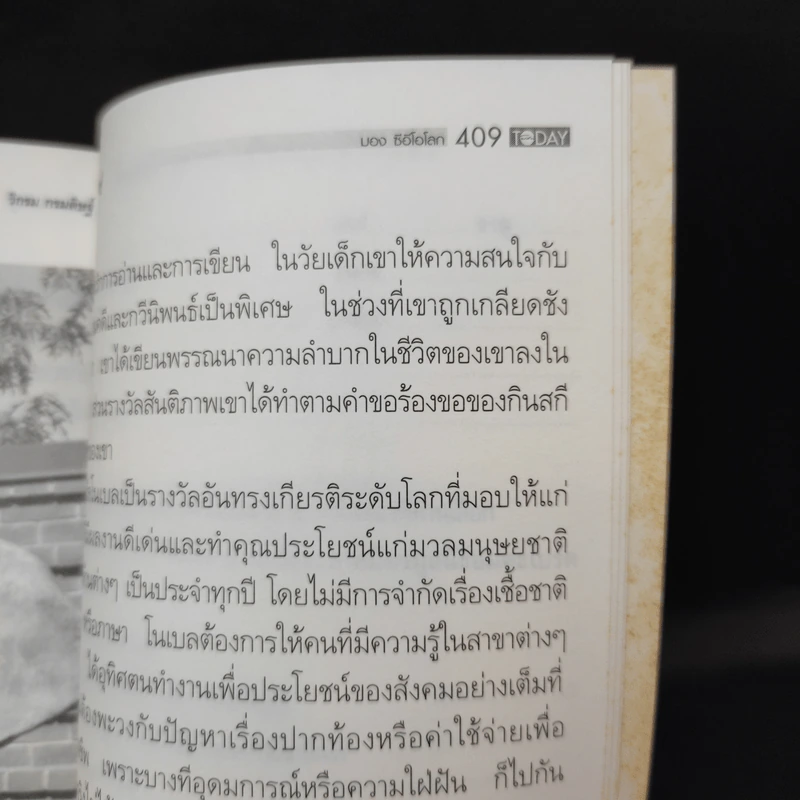 มอง ซีอีโอโลก 409 TODAY
วิกรม กรมดิษฐ์
การอ่านและการเขียน ในวัยเด็กเขาให้ความสนใจกับ
และกวีนิพนธ์เป็นพิเศษ ในช่วงที่เขาถูกเกลียดชัง
เขาได้เขียนพรรณนาความลำบากในชีวิตของเขาลงใน
ส่วนรางวัลสันติภาพเขาได้ทำตามคำขอร้องขอของกินสกี
ของเขา
โนเบลเป็นรางวัลอันทรงเกียรติระดับโลกที่มอบให้แก่
ผลงานดีเด่นและทำคุณประโยชน์แก่มวลมนุษยชาติ
ต่างๆ เป็นประจำทุกปี โดยไม่มีการจำกัดเรื่องเชื้อชาติ
หรือภาษา โนเบลต้องการให้คนที่มีความรู้ในสาขาต่างๆ
ได้อุทิศตนทำงานเพื่อประโยชน์ของสังคมอย่างเต็มที่
ต้องพะวงกับปัญหาเรื่องปากท้องหรือค่าใช้จ่ายเพื่อ
เพราะบางทีอุดมการณ์หรือความใฝ่ฝัน ก็ไปกัน